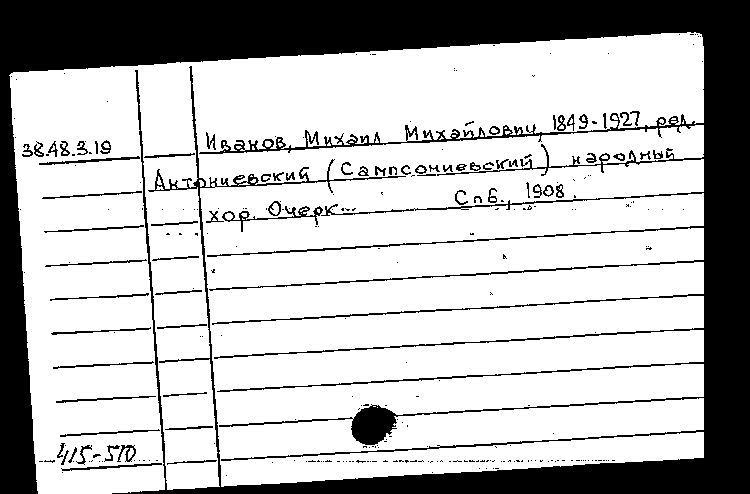 38.48.3.19
Иванов, Михаил Михайлович, 1849-1927, ред.
Антониевский (Сампсониевский) народный
хор. Очерк... Спб., 1908.
415-510